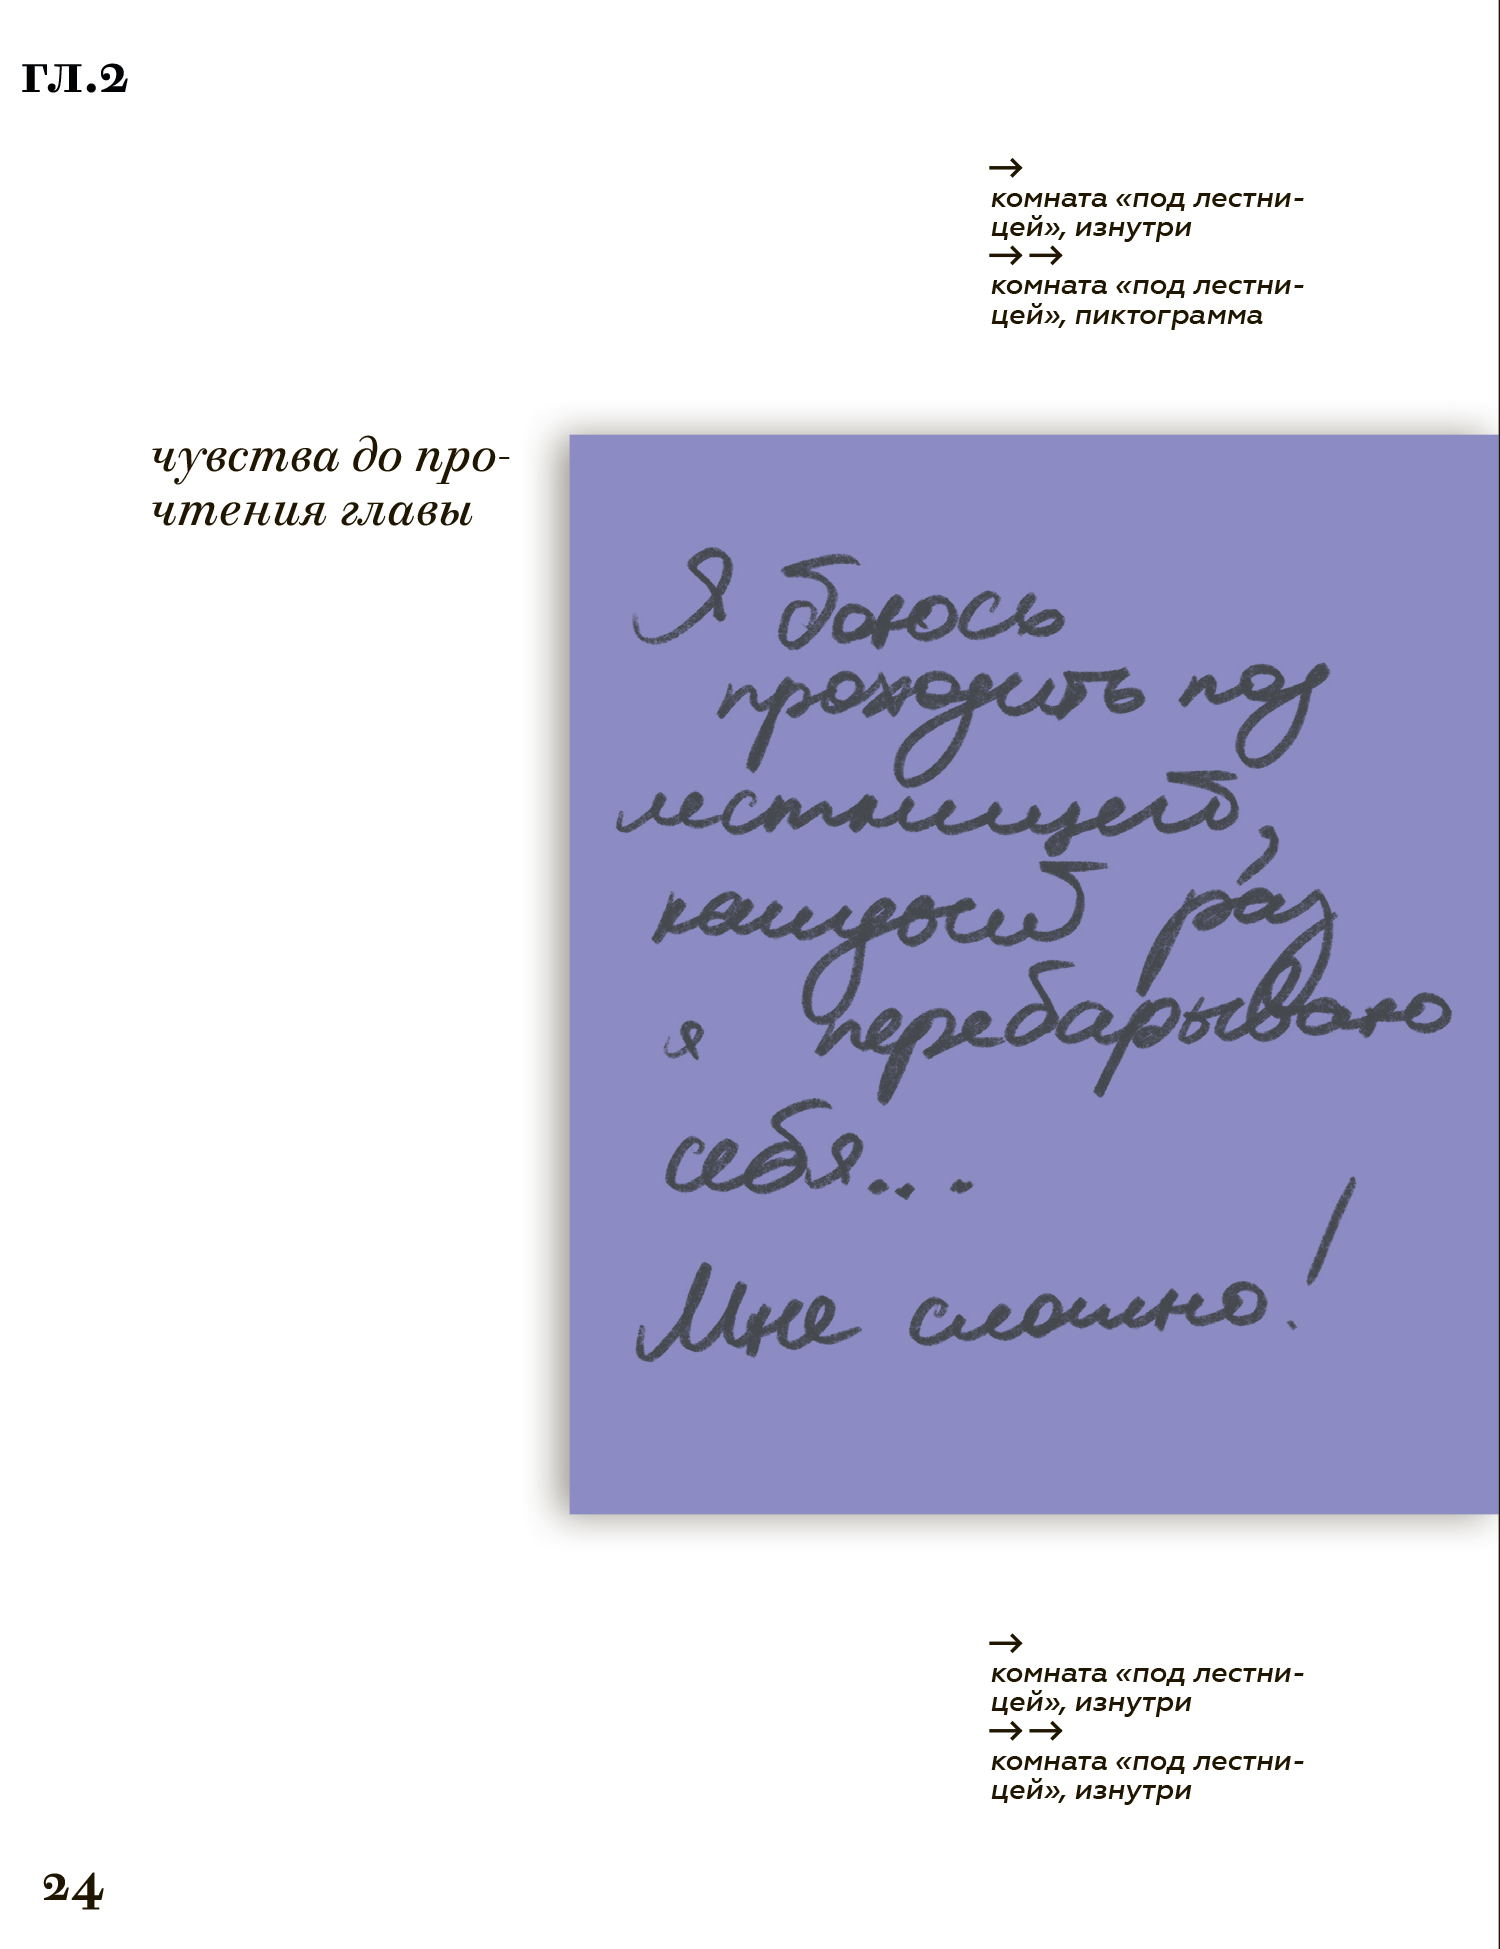 гл.2
→
комната «под лестни-
цей», изнутри
→→
комната «под лестни-
цей», пиктограмма
чувства до про-
чтения главы
Я боюсь
проходить под
лестницей,
каждый раз
я перебарываю
себя...
Мне сложно!
→
комната «под лестни-
цей», изнутри
→→
комната «под лестни-
цей», изнутри
24